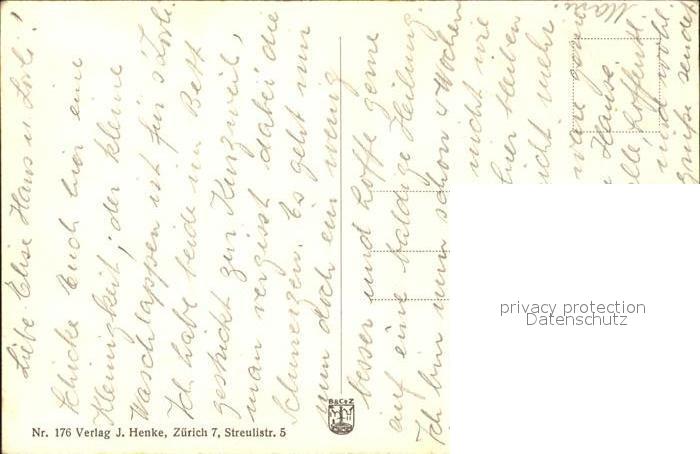 Liebe Elise Hans u. Lorli!
schicke Euch hier eine
Kleinigkeit, der kleine
Waschlappen ist für s'Lorli.
Ich habe beide im Bett
gestrickt zur Kurzweil,
man vergisst dabei die
Schmerzen. Es geht mir
nun doch ein wenig
besser und hoffe gerne
auf eine baldige Heilung.
Ich bin nun schon 4 Wochen
nicht wie
hier bleiben
nicht mehr
wäre gerne
Hause.
alle hoffentl.
und wohl.
Grüße sendet
Marie.
B&C+Z
Nr. 176 Verlag J. Henke, Zürich 7, Streulistr. 5
privacy protection
Datenschutz